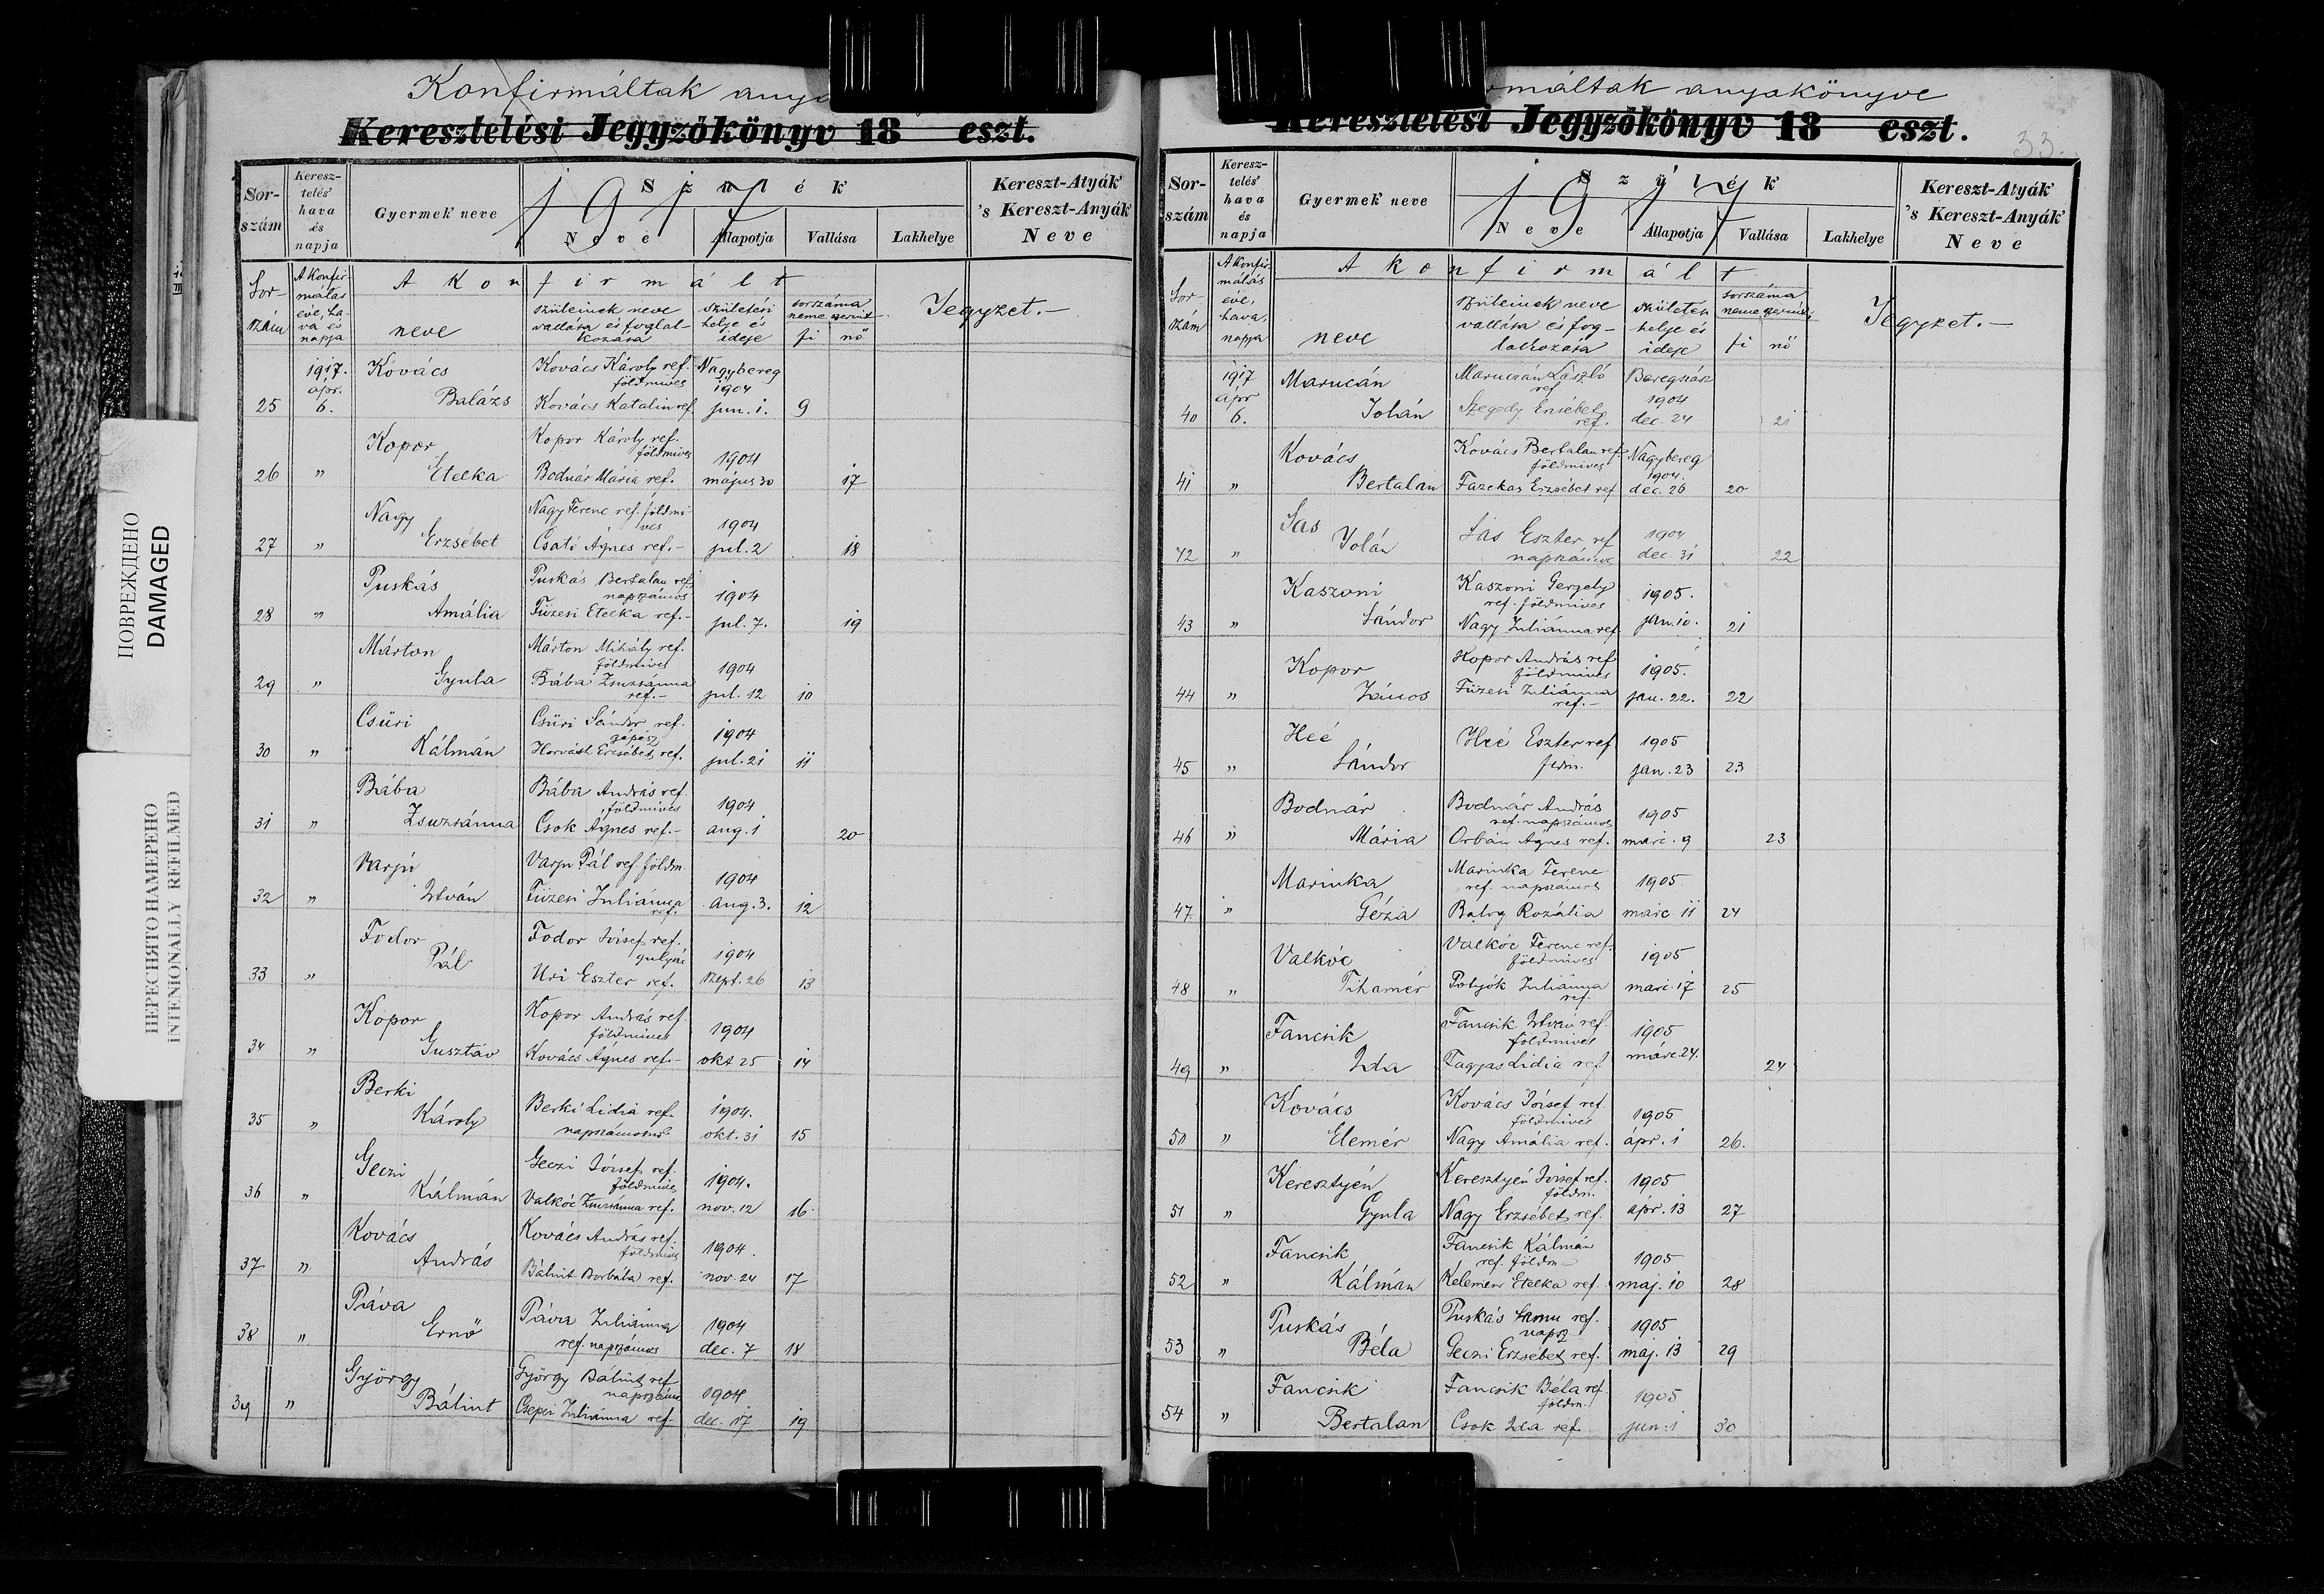 Konfirmáltak anya
Keresztelési Jegyzőkönyv 18 eszt.
Sor-
szám
Keresz-
telés'
hava
és
napja
Gyermek neve
Szülék
1917
Neve
Állapotja
Vallása
Lakhelye
Kereszt-Atyák'
's Kereszt-Anyák'
Neve
Sor-
szám
A konfir-
málás
éve, ha-
va és
napja
A konfirmált
neve
szüleinek neve
vallása és foglal-
kozása
születési
helye és
ideje
sorszáma
neme szerint
fi nő
Jegyzet.-
1917. Kovács Kovács Károly ref. Nagybereg
ápr. földmives 1904
25 6. Balázs Kovács Katalin ref. jun. 1. 9
Kopor Kopor Károly ref.
földmives 1904
26 " Etelka Bodnár Mária ref. május 30 17
Nagy Nagy Ferenc ref. földmi-
ves 1904
27 " Erzsébet Csató Ágnes ref.- jul. 2 18
Puskás Puskás Bertalan ref.
napszámos 1904
28 " Amália Füzesi Etelka ref.- jul. 7. 19
Márton Márton Mihály ref.
földmives 1904
29 " Gyula Bába Zsuzsánna jul. 12 10
ref.-
Csüri Csüri Sándor ref.
gépész 1904
30 " Kálmán Horváth Erzsébet ref. jul. 21 11
Bába Bába András ref.
földmives 1904
31 " Zsuzsánna Csok Ágnes ref.- aug. 1 20
Varjú Varju Pál ref. földm.
1904
32 " István Füzesi Juliánna aug. 3. 12
ref.
Fodor Fodor József ref.
gulyás 1904
33 " Pál Uri Eszter ref. szept. 26 13
Kopor Kopor András ref.
földmives 1904
34 " Gusztáv Kovács Ágnes ref.- okt 25 14
Berki
35 " Károly Berki Lidia ref. 1904.
napszámosnő okt. 31 15
Géczi Géczi József ref.
földmives 1904.
36 " Kálmán Valkóc Zsuzsánna ref. nov. 12 16.
Kovács Kovács András ref.
földmives 1904.
37 " András Bálint Borbála ref. nov. 24 17
Páva Páva Juliánna 1904
38 " Ernő ref. napszámos dec. 7 18
György György Bálint ref
napszámos 1904
39 " Bálint Csepei Juliánna ref- dec. 17 19
ПОВРЕЖДЕНО
DAMAGED
ПЕРЕСНЯТО НАМЕРЕНО
INTENIONALLY REFILMED
rmáltak anyakönyve
Keresztelési Jegyzőkönyv 18 eszt.
33.
Sor-
szám
Keresz-
telés'
hava
és
napja
Gyermek neve
Szülék
1917
Neve
Állapotja
Vallása
Lakhelye
Kereszt-Atyák'
's Kereszt-Anyák'
Neve
Sor-
szám
A konfir-
málás
éve,
hava,
napja
A konfirmált
neve
szüleinek neve
vallása és fog-
lalkozása
születési
helye és
ideje
sorszáma
neme szerint
fi nő
Jegyzet.-
1917 Marucán Maruczán László Beregszász
ápr ref. 1904
40 6. Jolán Szegedy Erzsébet dec. 24 21
ref.
Kovács Kovács Bertalan ref. Nagybereg
földmives 1904.
41 " Bertalan Fazekas Erzsébet ref dec. 26 20
Sas Sas Eszter ref 1904
42 " Jolán napszámos dec. 31 22
Kaszoni Kaszoni Gergely
ref. földmives 1905.
43 " Sándor Nagy Juliánna ref jan. 10. 21
Kopor Kopor András ref
földmives 1905.
44 " János Füzesi Juliánna jan. 22. 22
ref.-
Heé Heé Eszter ref 1905
45 " Sándor fldm. jan. 23 23
Bodnár Bodnár András
ref. napszámos 1905
46 " Mária Orbán Ágnes ref. marc. 9 23
Marinka Marinka Ferenc
ref. napszamos 1905
47. " Géza Balog Rozália marc 11 24
Valkóc Valkóc Ferenc ref.
földmives 1905
48 " Tihamér Potyók Juliánna marc. 17 25
ref.
Fancsik Fancsik István ref.
földmives 1905
49 " Ida Fagyas Lidia ref márc 24. 24
Kovács Kovács József ref.
földmives 1905
50 " Elemér Nagy Amália ref. ápr. 1 26.
Keresztyén Keresztyén József ref.
földm. 1905
51 " Gyula Nagy Erzsébet ref. ápr. 13 27
Fancsik Fancsik Kálmán
ref. földm- 1905
52 " Kálmán Kelemen Etelka ref. maj. 10 28
Puskás Puskás Samu ref.
napsz 1905
53 " Béla Géczi Erzsébet ref. máj. 13 29
Fancsik Fancsik Béla ref.
földm. 1905
54 " Bertalan Csok Ida ref. jun. 1 30